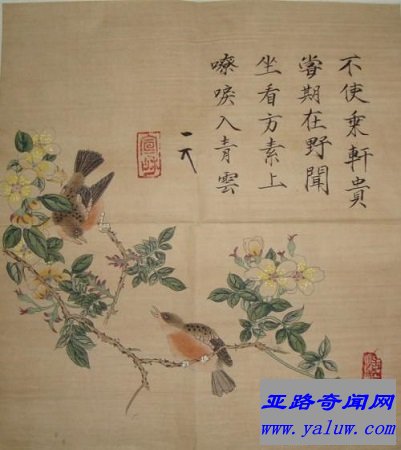 不使乘軒貴
當期在野聞
坐看方素上
嘹唳入青雲
宣龢
亚路奇闻网
www.yaluw.com